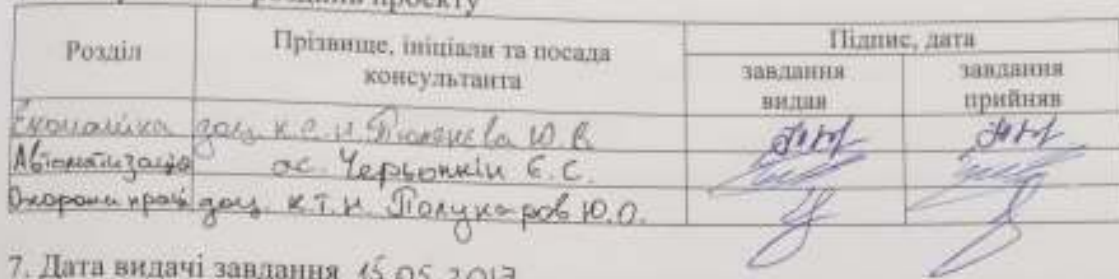 проекту
Розділ Прізвище, ініціали та посада консультанта Підпис, дата
завдання видав завдання прийняв
Економіка доц. к.е.н. Ю.В.
Автоматизація ас. Черьопкін Є.С.
Охорона праці доц. к.т.н. Полукаров Ю.О.
7. Дата видачі завдання 15.05.2017